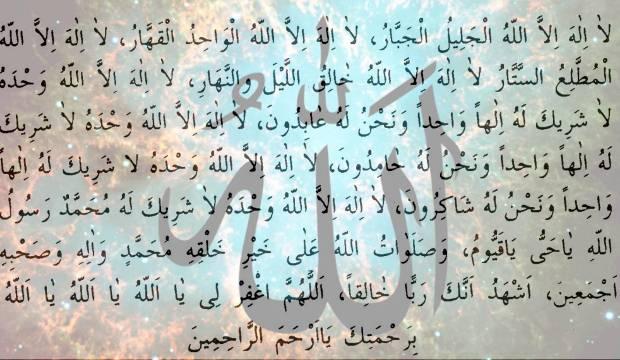 لاٰ اِلٰهَ اِلاَّ اللّٰهُ الْجَلِيلُ الْجَبَّارُ، لاٰ اِلٰهَ اِلاَّ اللّٰهُ الْوَاحِدُ الْقَهَّارُ، لاٰ اِلٰهَ اِلاَّ اللّٰهُ
الْمُطَّلِعُ السَّتَّارُ لاٰ اِلٰهَ اِلاَّ اللّٰهُ خَالِقُ اللَّيْلِ وَالنَّهَارِ، لاٰ اِلٰهَ اِلاَّ اللّٰهُ وَحْدَهُ
لاٰ شَرِيكَ لَهُ اِلٰهاً وَاحِداً وَنَحْنُ لَهُ عَابِدُونَ، لاٰ اِلٰهَ اِلاَّ اللّٰهُ وَحْدَهُ لاٰ شَرِيكَ
لَهُ اِلٰهاً وَاحِداً وَنَحْنُ لَهُ حَامِدُونَ، لاٰ اِلٰهَ اِلاَّ اللّٰهُ وَحْدَهُ لاٰ شَرِيكَ لَهُ اِلٰهاً
وَاحِداً وَنَحْنُ لَهُ شَاكِرُونَ، لاٰ اِلٰهَ اِلاَّ اللّٰهُ وَحْدَهُ لاٰ شَرِيكَ لَهُ مُحَمَّدٌ رَسُولُ
اللّٰهِ يٰاحَىُّ يَاقَيُّومُ، وَصَلَوَاتُ اللّٰهُ عَلٰى خَيْرِ خَلْقِهِ مُحَمَّدٍ وَاٰلِهِ وَصَحْبِهِ
اَجْمَعِينَ، اَشْهَدُ اَنَّكَ رَبًّا خَالِقاً، اَللّٰهُمَّ اغْفِرْ لِى يٰا اَللّٰهُ يٰا اَللّٰهُ يٰا اَللّٰهُ
بِرَحْمَتِكَ يٰااَرْحَمَ الرَّاحِمِينَ
الله